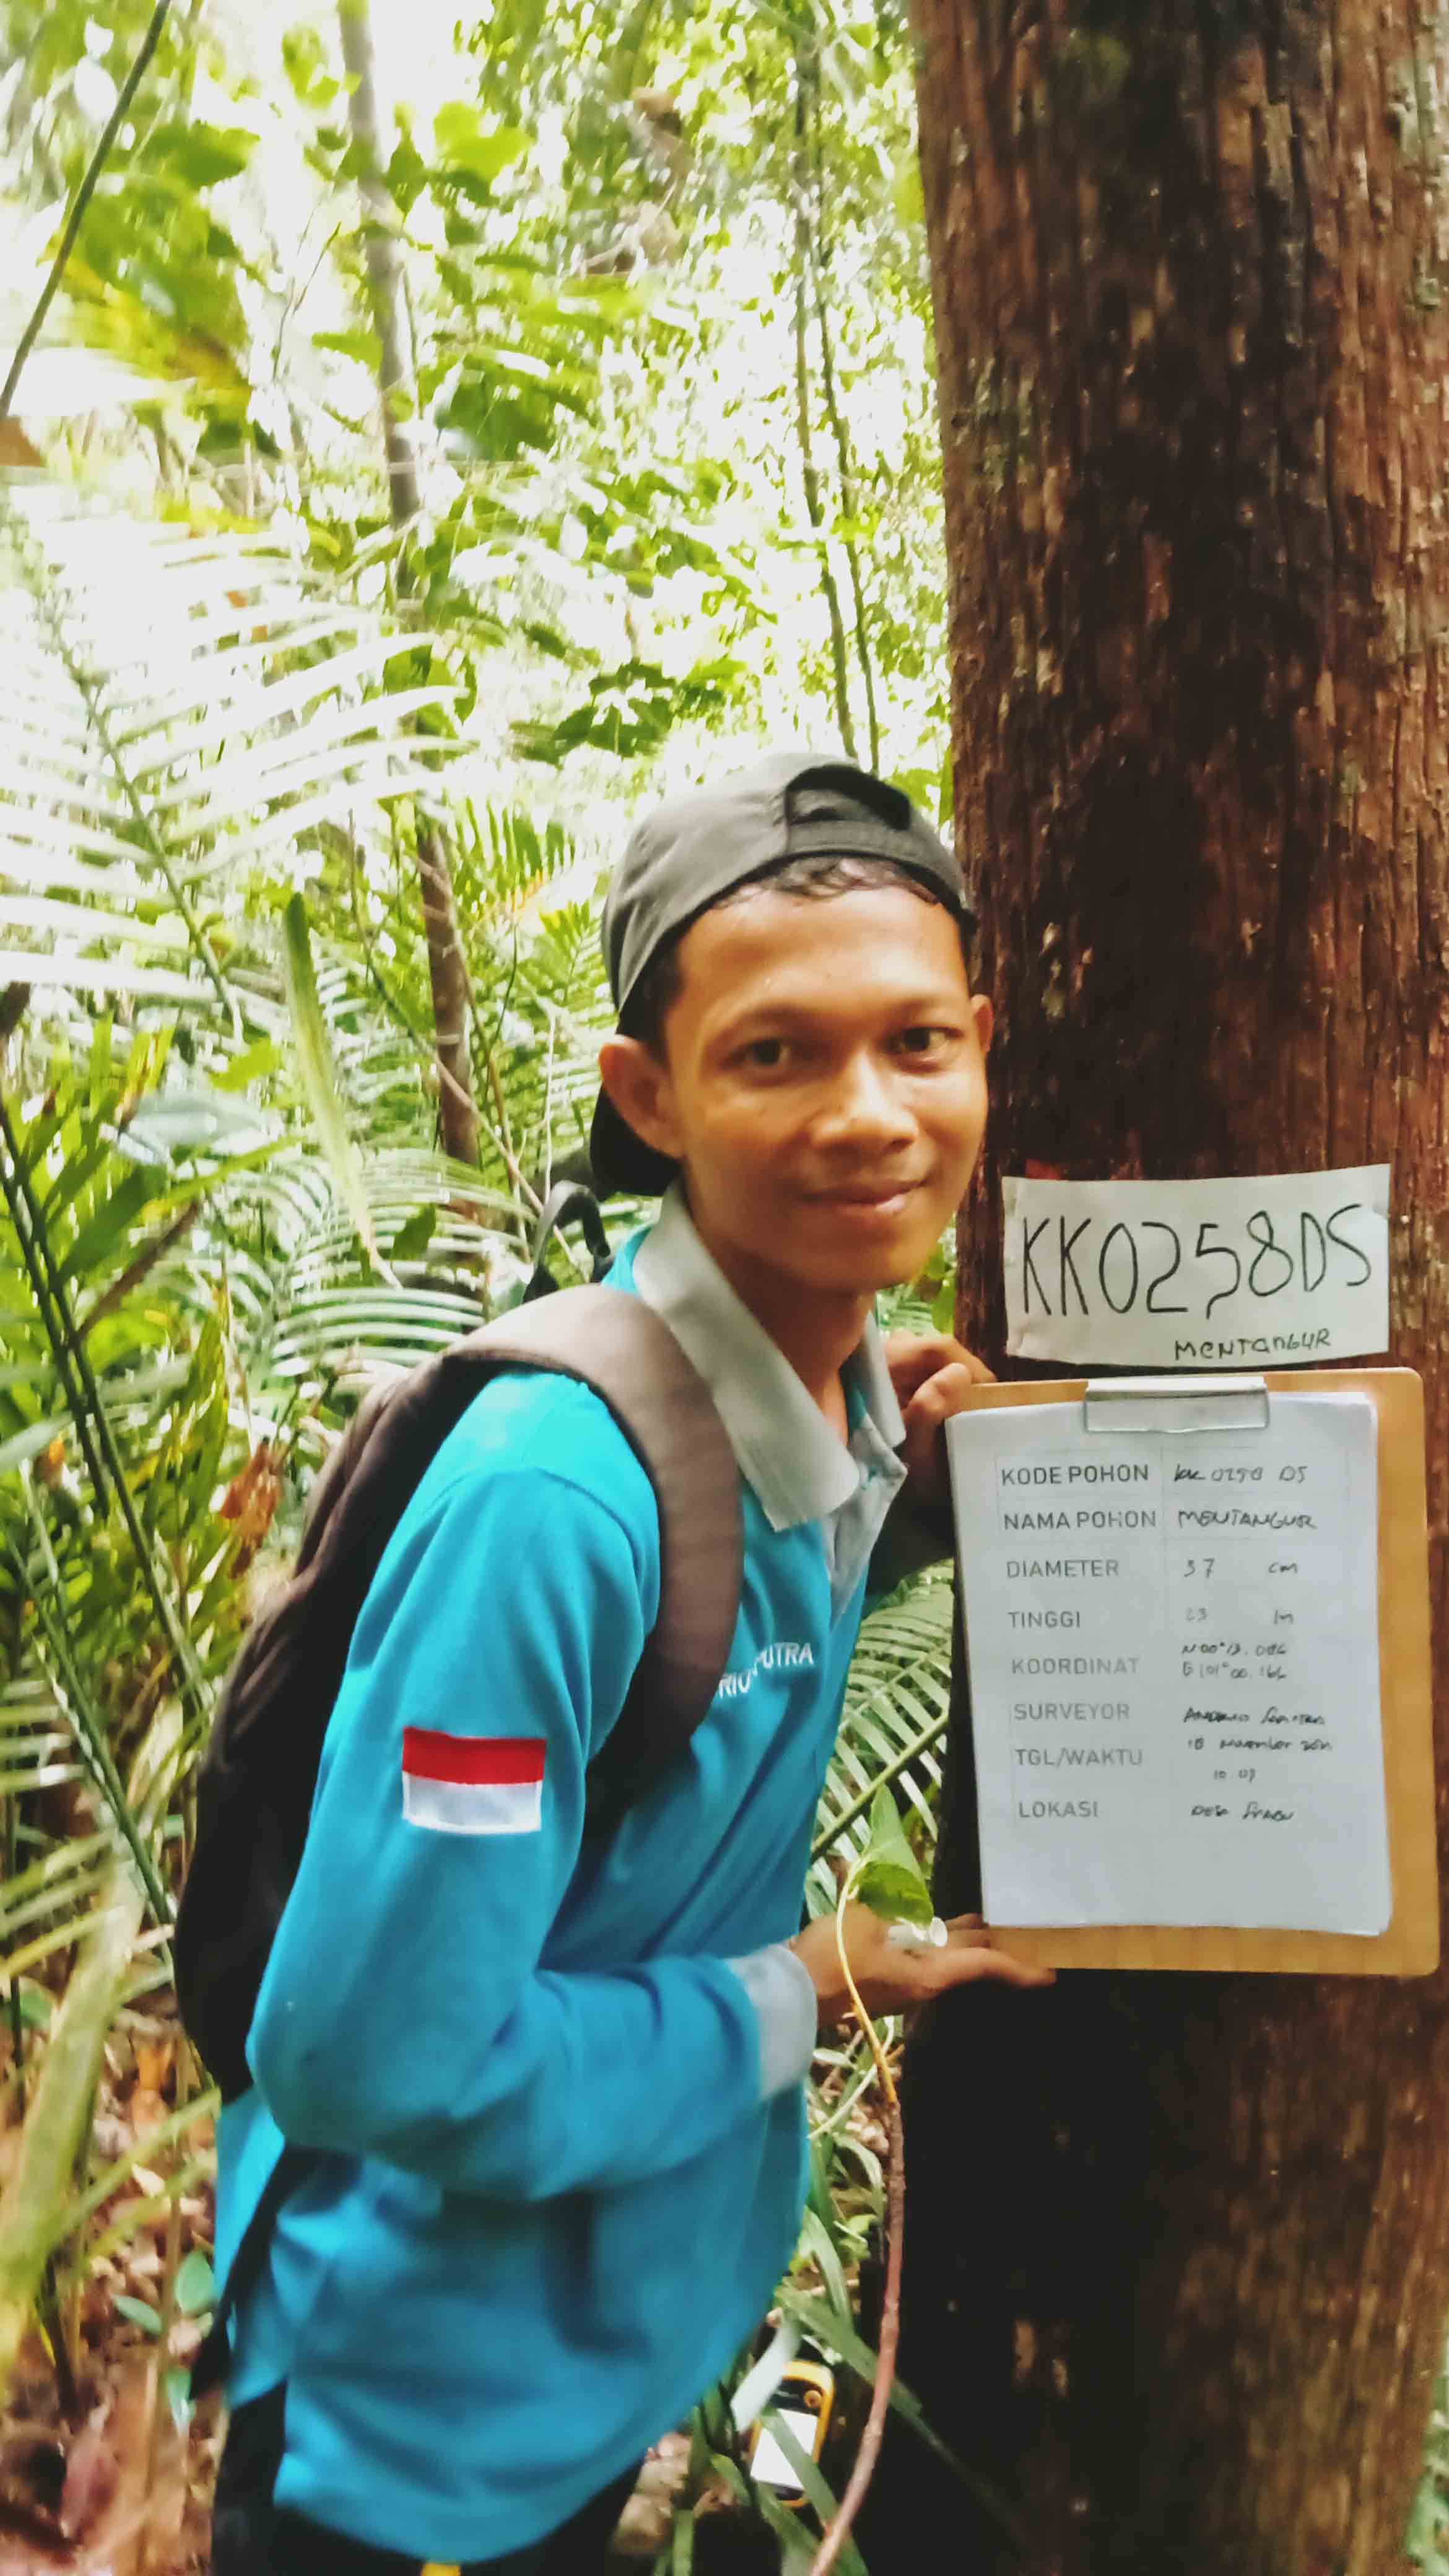 KK0258DS
MENTANGUR
KODE POHON KK 0258 DS
NAMA POHON MENTANGUR
DIAMETER 37 cm
TINGGI 23 m
KOORDINAT N 00° 13.
E 101° 00. 166
SURVEYOR
TGL/WAKTU 18 November
10.09
LOKASI DESA
PUTRA